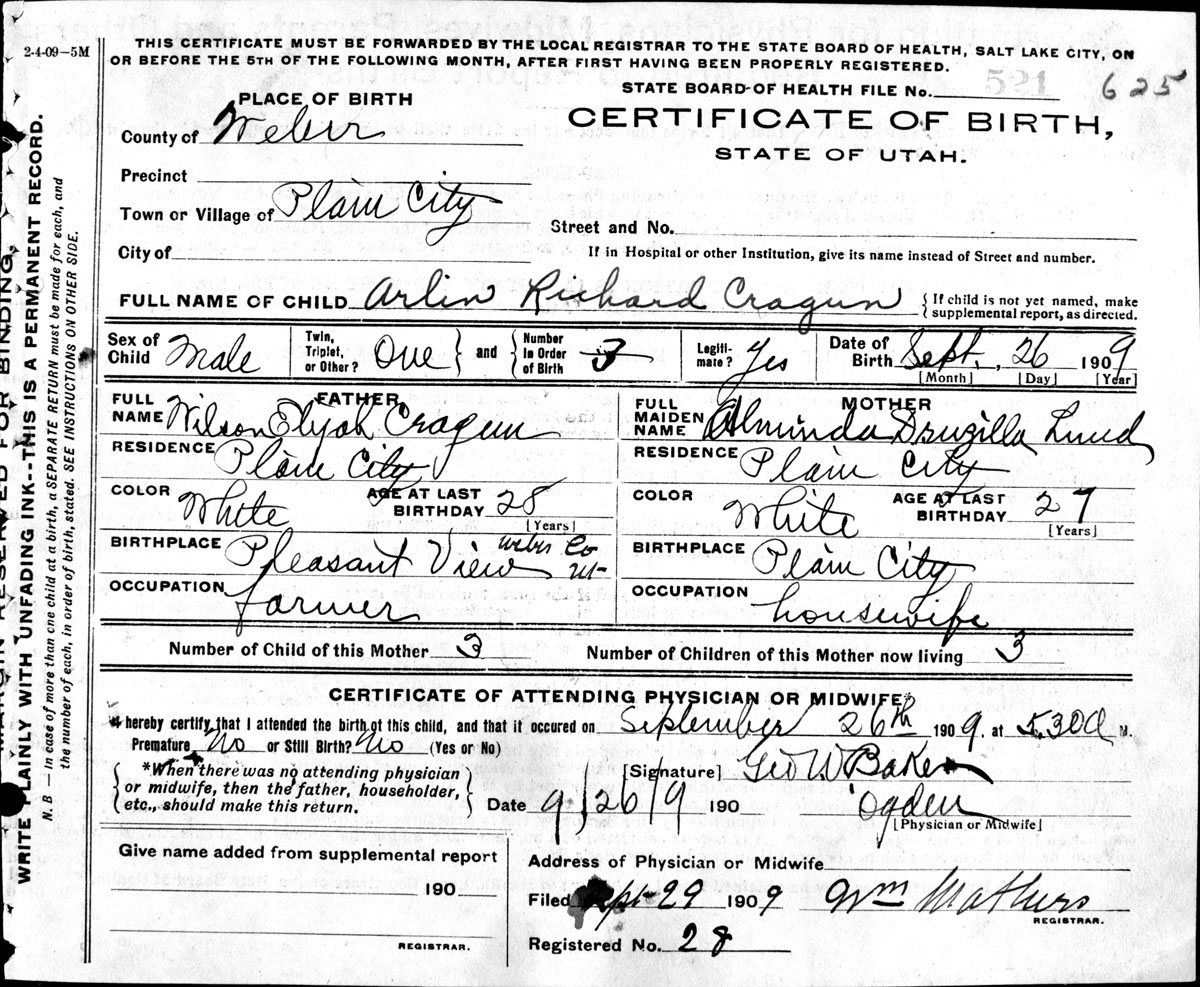 2-4-09—5M
THIS CERTIFICATE MUST BE FORWARDED BY THE LOCAL REGISTRAR TO THE STATE BOARD OF HEALTH, SALT LAKE CITY, ON
OR BEFORE THE 5TH OF THE FOLLOWING MONTH, AFTER FIRST HAVING BEEN PROPERLY REGISTERED.
STATE BOARD OF HEALTH FILE No. 521 625
PLACE OF BIRTH
County of Weber
CERTIFICATE OF BIRTH,
STATE OF UTAH.
Precinct
Town or Village of Plain City
Street and No.
City of
If in Hospital or other Institution, give its name instead of Street and number.
FULL NAME OF CHILD Arlin Richard Cragun { If child is not yet named, make
supplemental report, as directed.
Sex of Child Male Twin, Triplet, or Other? One } and { Number in Order of Birth 3 Legiti-mate? Yes Date of Birth Sept. 26 1909
[Month] [Day] [Year]
FATHER
FULL NAME Wilson Elijah Cragun
RESIDENCE Plain City
COLOR White AGE AT LAST BIRTHDAY 28
[Years]
BIRTHPLACE Pleasant View Weber Co Ut
OCCUPATION farmer
MOTHER
FULL MAIDEN NAME Alminda Druzilla Lund
RESIDENCE Plain City
COLOR White AGE AT LAST BIRTHDAY 27
[Years]
BIRTHPLACE Plain City
OCCUPATION housewife
Number of Child of this Mother 3 Number of Children of this Mother now living 3
CERTIFICATE OF ATTENDING PHYSICIAN OR MIDWIFE*
hereby certify that I attended the birth of this child, and that it occured on September 26th 1909, at 5.30 a M.
Premature No or Still Birth? No (Yes or No)
{ *When there was no attending physician
or midwife, then the father, householder,
etc., should make this return. }
[Signature] Geo W Baker
Date 9/26/9 190 Ogden
[Physician or Midwife]
Give name added from supplemental report
190
REGISTRAR.
Address of Physician or Midwife
Filed Sept 29 1909 Wm Mathers
REGISTRAR.
Registered No. 28
MARGIN RESERVED FOR BINDING.
WRITE PLAINLY WITH UNFADING INK--THIS IS A PERMANENT RECORD.
N. B — In case of more than one child at a birth, a SEPARATE RETURN must be made for each, and
the number of each, in order of birth, stated. SEE INSTRUCTIONS ON OTHER SIDE.